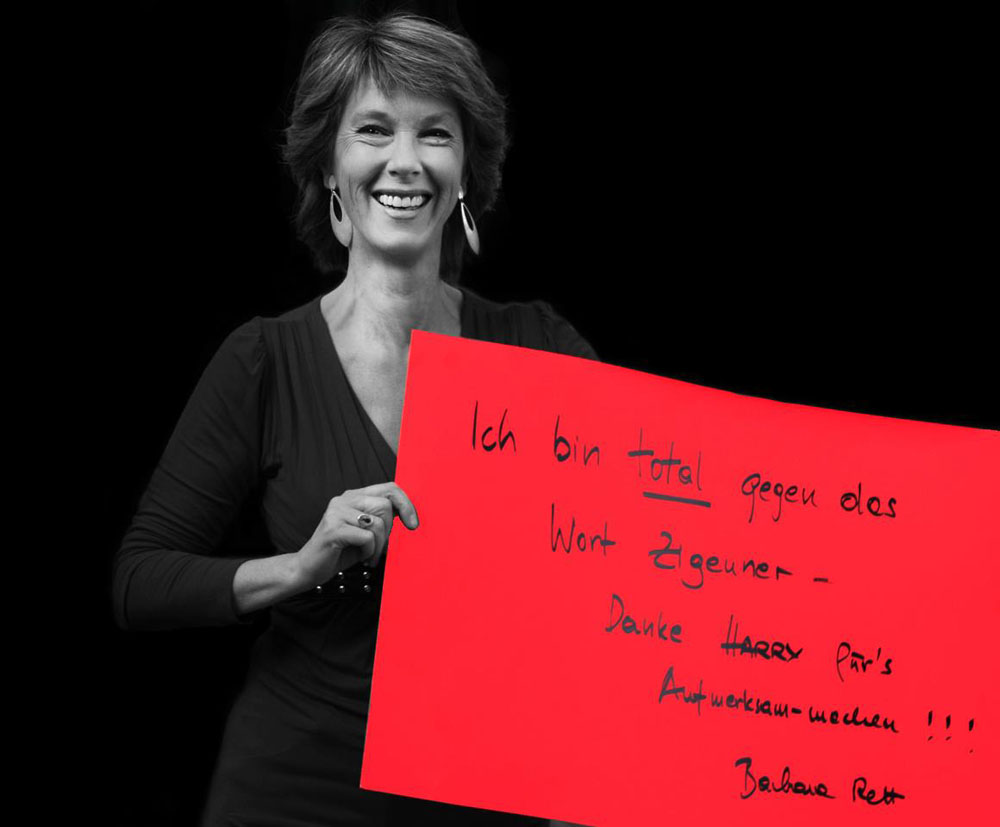 Ich bin total gegen das
Wort Zigeuner -
Danke HARRY für's
Aufmerksam-machen !!!
Barbara Rett